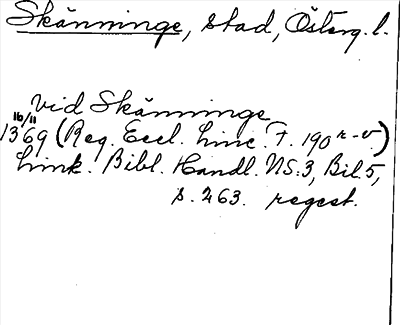 Skänninge, stad, Österg. l.
vid Skänninge
16/11
1369 (Reg. Eccl. Linc. F. 190 r-v.)
Link. Bibl. Handl. NS:3, Bil. 5,
s. 263. regest.